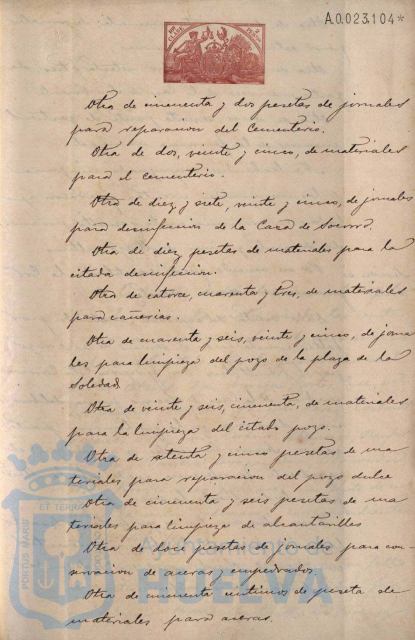 A.0.023.104*
Otra de cincuenta y dos pesetas de jornales
para reparacion del Cementerio.
Otra de dos, veinte y cinco, de materiales
para el cementerio.
Otra de diez y siete, veinte y cinco, de jornales
para desinfeccion de la Casa de Socorro.
Otra de diez pesetas de materiales para la
citada desinfeccion.
Otra de catorce, cuarenta y tres, de materiales
para cañerias.
Otra de cuarenta y seis, veinte y cinco, de jorna
les para limpieza del pozo de la plaza de la
Soledad
Otra de veinte y seis, cincuenta, de materiales
para la limpieza del citado pozo.
Otra de setenta y cinco pesetas de ma
teriales para reparacion del pozo dulce
Otra de cincuenta y seis pesetas de ma
teriales para limpieza de alcantarillas
Otra de doce pesetas de jornales para con-
servacion de aceras y empedrados.
Otra de cincuenta centimos de peseta de
materiales para aceras.
PORTUS MARIS ET TERRAE
Ayuntamiento de
HUELVA